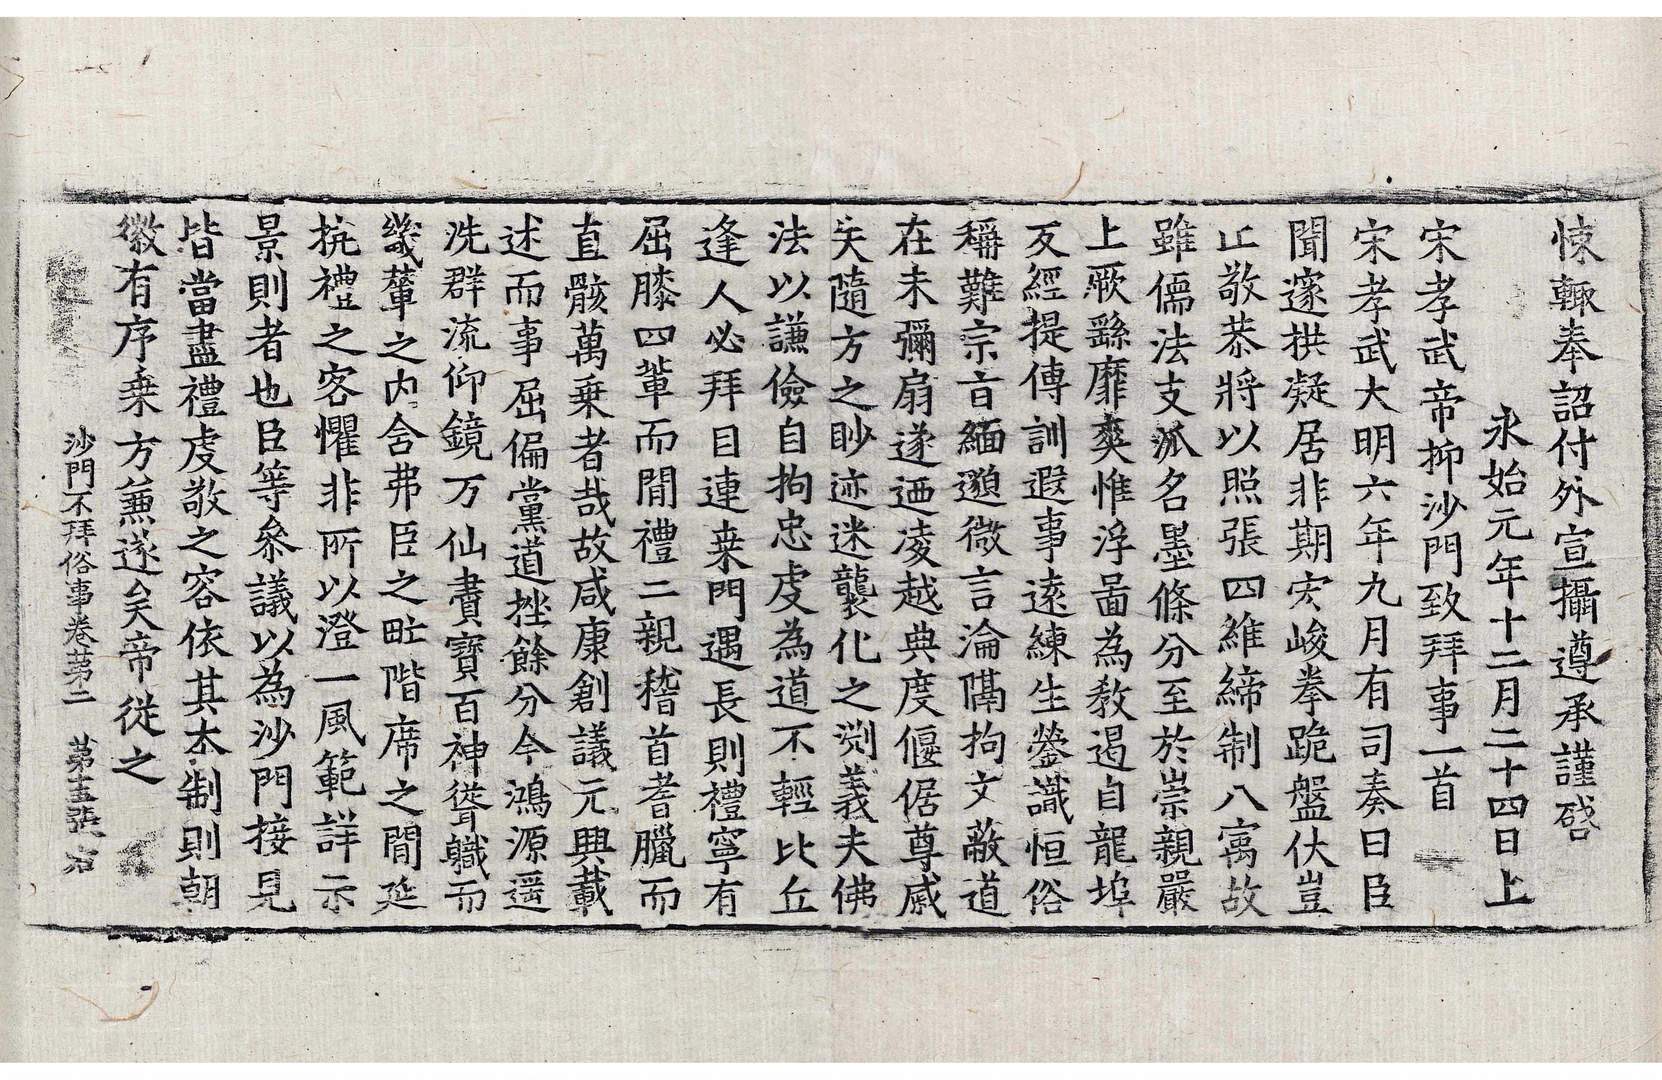 悚輙奉詔付外宣攝遵承謹啓
永始元年十二月二十四日上
宋孝武帝抑沙門致拜事一首
宋孝武大明六年九月有司奏曰臣
聞邃拱凝居非期宏峻拳跪盤伏豈
止敬恭將以照張四維締制八寓故
雖儒法支派名墨條分至於崇親嚴
上厥繇靡爽惟浮啚為教遏自龍埠
反經提傳訓遐事遠練生瑩識恒俗
稱難宗旨緬邈微言淪隔拘文蔽道
在未彌扇遂迺凌越典度偃倨尊戚
失隨方之眇迹迷襲化之渕義夫佛
法以謙儉自拘忠虔為道不輕比丘
逢人必拜目連桒門遇長則禮寧有
屈膝四輩而閒禮二親稽首耆臘而
直骸萬乗者哉故咸康創議元興載
述而事屈偏黨道挫餘分今鴻源遥
洗群流仰鏡万仙賮寶百神聳軄而
畿輦之内舍弗臣之甿階席之閒延
抗禮之客懼非所以澄一風範詳示
景則者也臣等叅議以為沙門接見
皆當盡禮虔敬之容依其夲制則朝
徽有序乗方兼遂矣帝從之
沙門不拜俗事卷苐二　苐十五張